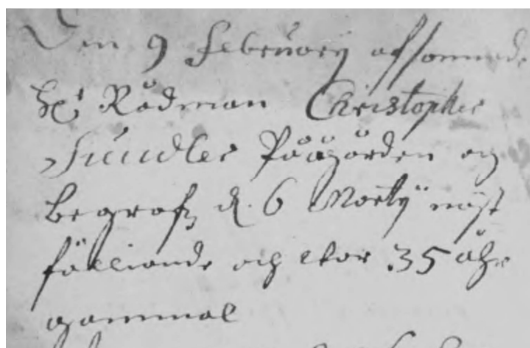 Den 9 Februarij afsomnade
Hr Rådman Christopher
Sundler Påågården og
begrofz d. 6 Martij näst
fölliande och war 35 åhr
gammal